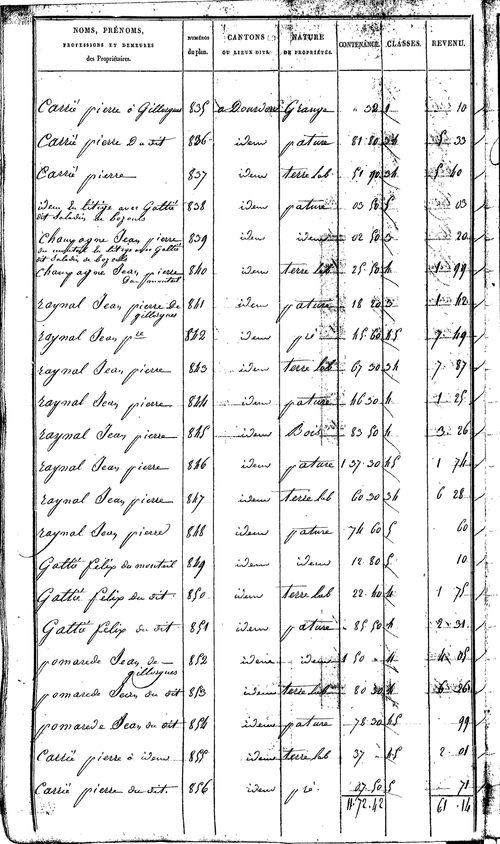 NOMS, PRÉNOMS, PROFESSIONS ET DEMEURES des Propriétaires. NUMÉROS du plan. CANTONS OU LIEUX DITS. NATURE DE PROPRIÉTÉS. CONTENANCE. CLASSES. REVENU.
Carrié pierre à Gillorgues 835 a Dourdorre Grange " 32 1 10
Carrié pierre Du dit 836 idem pature 81 80 34 5 33
Carrié pierre 837 idem terre lab 51 90 34 5 40
idem en litige avec Gattié dit Saludin de bozouls 838 idem pature 03 50 5 03
Champagne Jean pierre du monteil en litige avec Gattié dit Saludin de bozouls 839 idem idem 02 50 3 20
Champagne Jean pierre Du monteil 840 idem terre lab 25 50 4 1 99
raynal Jean pierre De gillorgues 841 idem pature 18 20 3 1 42
raynal Jean pre 842 idem pré 45 60 45 7 49
raynal Jean pierre 843 idem terre lab 67 30 34 7 87
raynal Jean pierre 844 idem pature 46 30 4 1 25
raynal Jean pierre 845 idem Bois 83 50 4 3 26
raynal Jean pierre 846 idem pature 1 37 30 45 1 74
raynal Jean pierre 847 idem terre lab 60 30 34 6 28
raynal Jean pierre 848 idem pature 74 60 5 60
Gattié félix du monteil 849 idem idem 12 80 5 10
Gattié félix du dit 850 idem terre lab 22 40 4 1 75
Gattié félix du dit 851 idem pature 85 50 4 2 31
pomarede Jean de gillorgues 852 idem idem 1 50 " 4 4 05
pomarede Jean du dit 853 idem terre lab 80 30 4 6 26
pomarede Jean du dit 854 idem pature 78 30 45 99
Carrié pierre à idem 855 idem terre lab 37 " 45 2 01
Carrié pierre du dit 856 idem pré 07 50 5 71
11.72.42 61 14